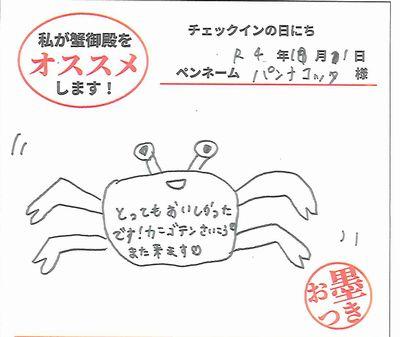 私が蟹御殿を
オススメ
します!
チェックインの日にち
R4 年 10月 21日
ペンネーム パンナコッタ 様
とってもおいしかった
です!カニゴテンさいこう
また来ます♡
お墨つき